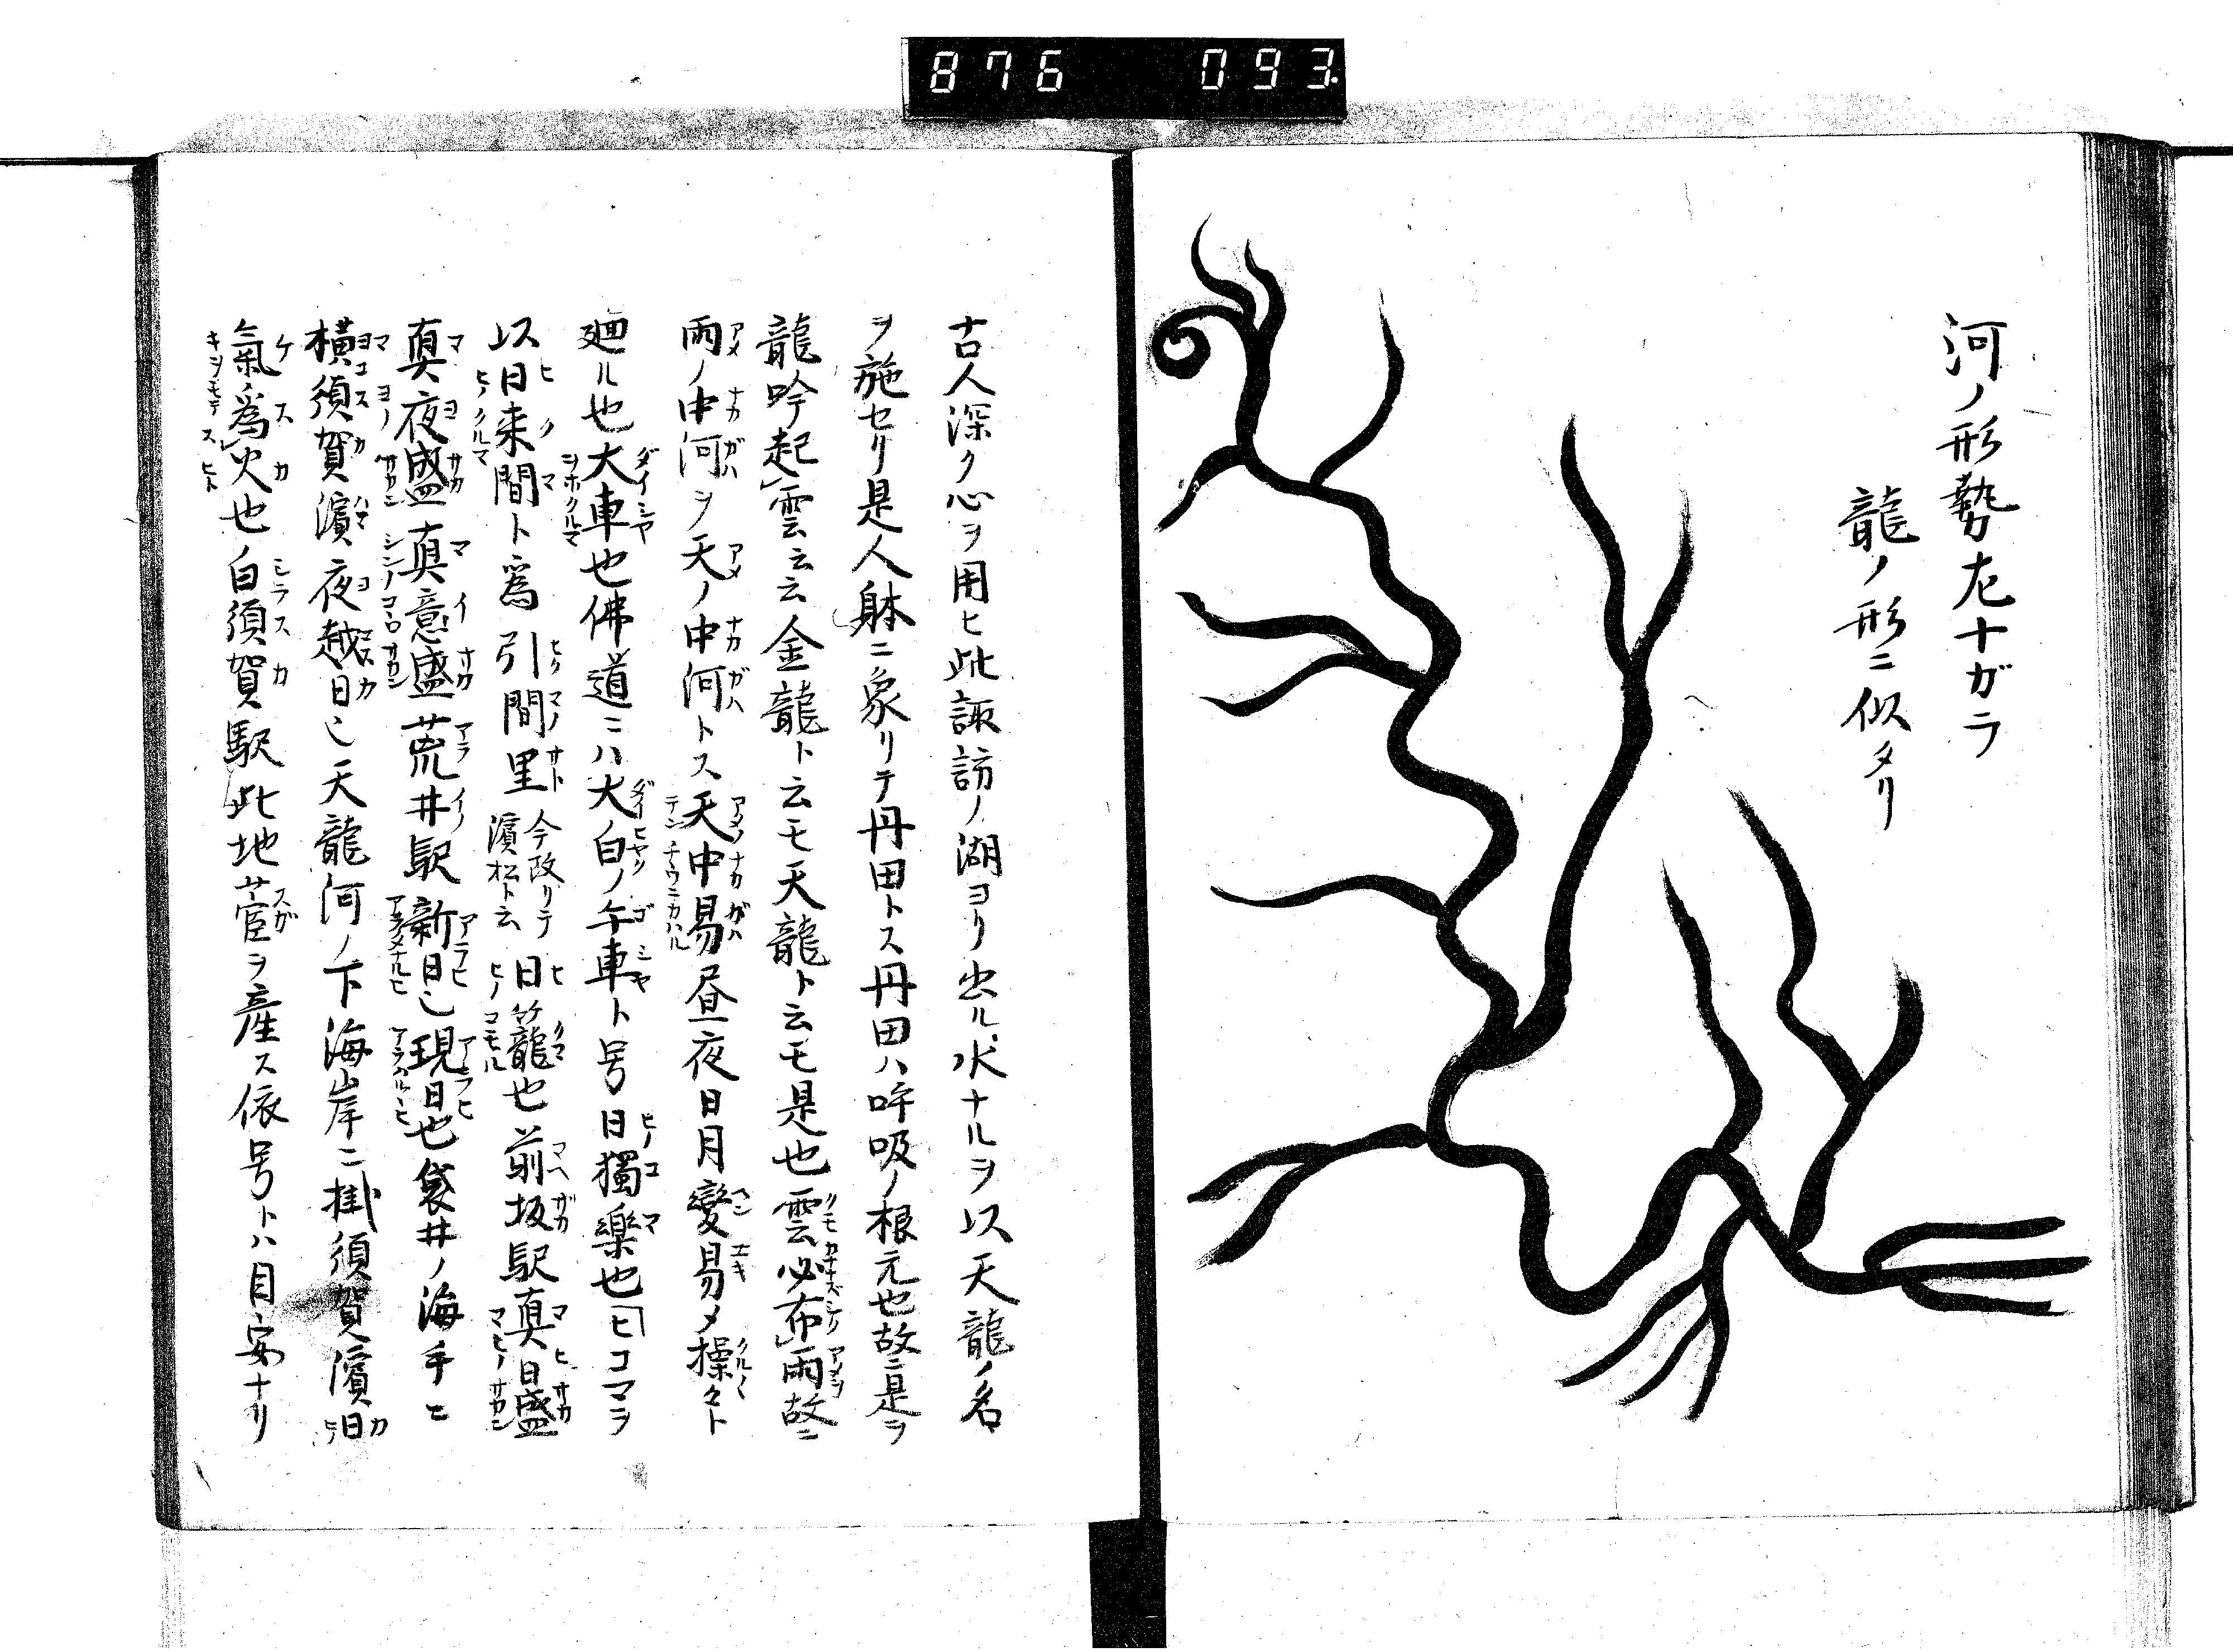 876 093.
河ノ形勢尢ナガラ
龍ノ形ニ似タリ
古人深ク心ヲ用ヒ此諏訪ノ湖ヨリ出ル水ナルヲ以天龍ノ名
ヲ施セリ是人躰ニ象リテ丹田トス丹田ハ呼吸ノ根元也故ニ是ヲ
龍吟起雲云云金龍ト云モ天龍ト云モ是也雲必布雨故ニ
雨ノ中河ヲ天ノ中河トス天中易昼夜日月變易メ操々ト
廻ル也大車也佛道ニハ大白ノ午車ト号日獨樂也ヒコマヲ
以日来間ト爲引間里今改リテ濱松ト云日籠也前坂駅真日盛
真夜盛真意盛荒井駅新日也現日也袋井ノ海手ヒ
横須賀濱夜越日也天龍河ノ下海岸ニ掛須賀濱日
氣爲火也白須賀駅此地菅ヲ産ス依号トハ目安ナリ